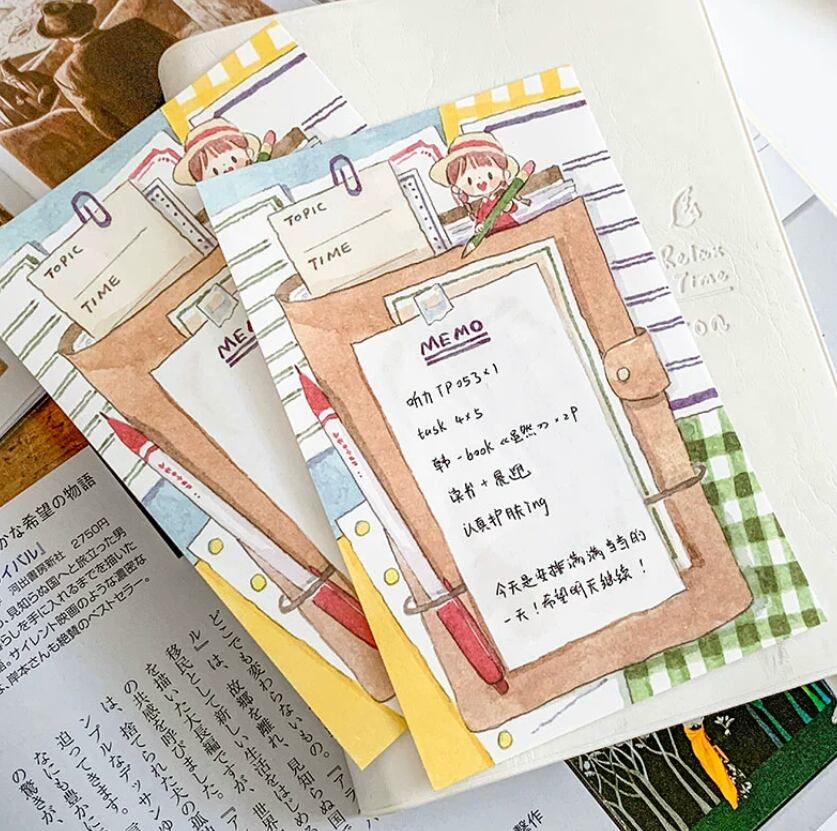 TOPIC
TIME
MEMO
TOPIC
TIME
MEMO
听力 TP053×1
task 4×5
韩-book《虽然》×2P
读书+晨跑
认真护肤ing
今天是安排满满当当的
一天!希望明天继续!
Relax
Time
かな希望の物語
イバル』
河出書房新社 2750円
、見知らぬ国へと旅立った男
暮らしを手に入れるまでを描いた
。サイレント映画のような濃密な
、岸本さんも絶賛のベストセラー。
どこでも変わらないもの。『ア
は、故郷を離れ、見知らぬ
として新しい生活をはじめ
移民として
を描いた大長編ですが、
の共感を呼びました。
は、捨てられた犬の孤
ンプルなデッサン
迫ってきます。
なにも豊かに
の驚きが、
撃作